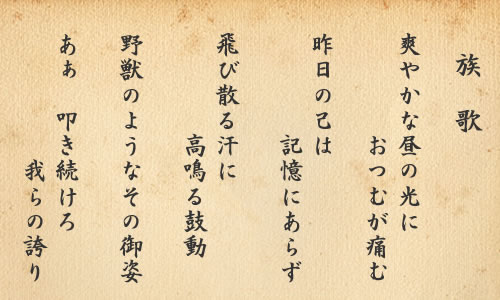 族歌
爽やかな昼の光に
おつむが痛む
昨日の己は
記憶にあらず
飛び散る汗に
高鳴る鼓動
野獣のようなその御姿
あぁ 叩き続けろ
我らの誇り